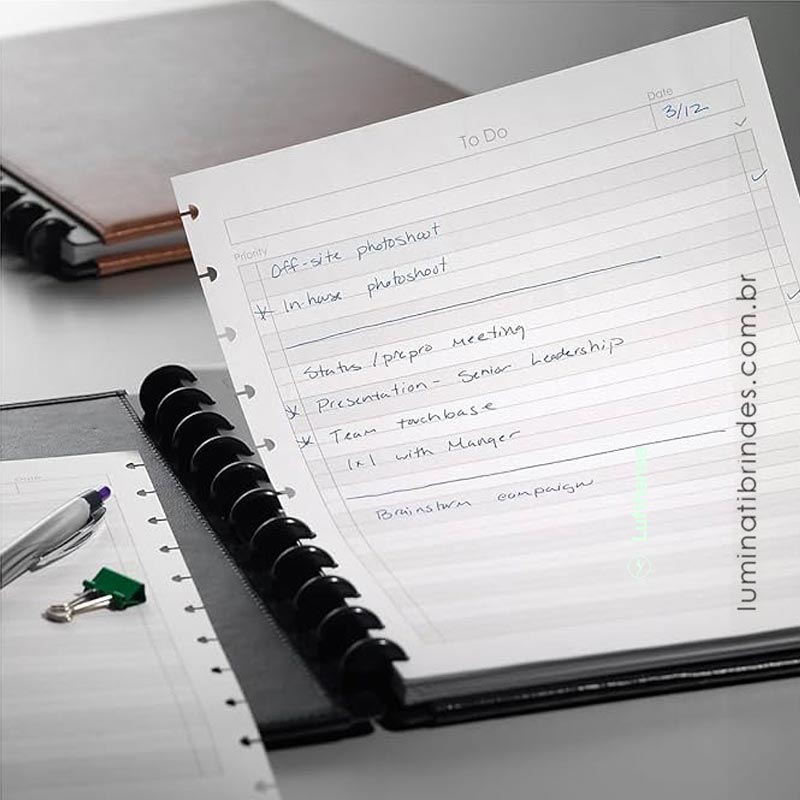 To Do
Date
3/12
Priority
Off-site photoshoot
In-house photoshoot
Status/prepro meeting
Presentation - Senior Leadership
Team touchbase
1x1 with Manger
Brainstorm campaign
luminatibrindes.com.br
Date